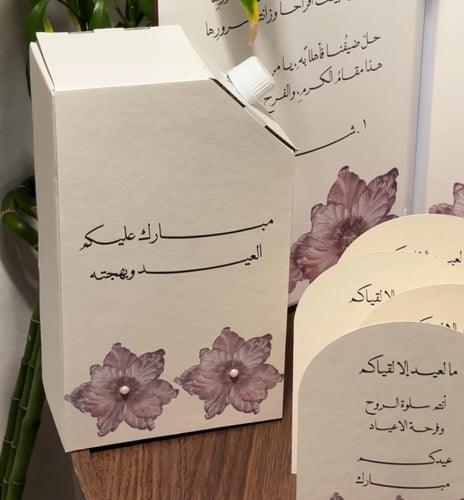 وزانته سرورها
حلّ ضيفُنا فأهلا به, يا مر
هذا مقامُ الكرمِ, والفرح
١. شـ
مبارك عليكم
العيد وبهجته
لقياكم
الا لقياكم
مالعيد إلا لقياكم
أنتم سلوة الروح
وفرحة الاعياد
عيدكم
مبارك